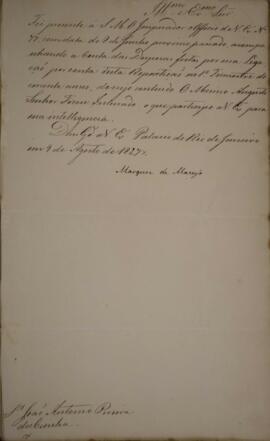 Illmo e Exmo Snr
Foi presente a S. M. O Imperador o officio de V. Ex.ª Nº
77, com data de 9 de Junho proximo passado, acompa
nhando a Conta das Despezas feitas por essa Lega
ção por conta desta Repartição no 1º Trimestre do
corrente anno, de cujo contheudo O Mesmo Augusto
Senhor Ficou Inteirado o que participo a V. Ex.ª para
sua intelligencia.
Deus Gde a V. Ex.ª Palacio do Rio de Janeiro
em 9 de Agosto de 1827.
Marquez de Maceyó
Sr. José Antonio Pereira
da Cunha